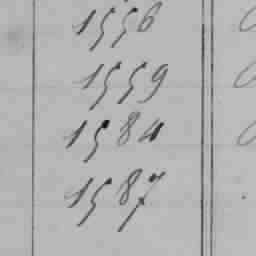 1556
1559
1584
1587